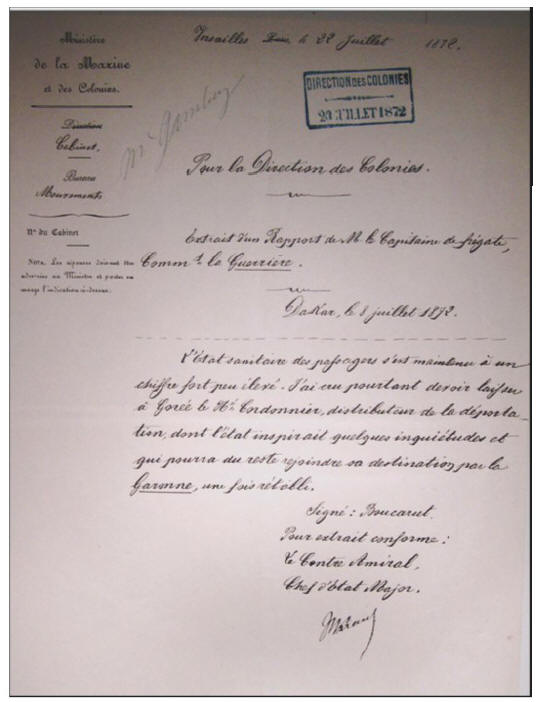 Ministère
de la Marine
et des Colonies.
Direction
Cabinet.
Bureau
Mouvements
N° du Cabinet
Nota. Les réponses doivent être
adressées au Ministre et porter en
marge l'indication ci-dessus.
Versailles Paris, le 22 Juillet 1872.
DIRECTION DES COLONIES
23 JUILLET 1872
Pour la Direction des Colonies.
Extrait d'un Rapport de M. le Capitaine de frégate,
Commt. la Guerrière.
Dakar, le 8 juillet 1872.
L'Etat sanitaire des passagers s'est maintenu à un
chiffre fort peu élevé. J'ai cru pourtant devoir laisser
à Gorée le Sr. Cordonnier, distributeur de la déporta-
tion, dont l'état inspirait quelques inquiétudes et
qui pourra du reste rejoindre sa destination par la
Garonne, une fois rétabli.
Signé : Boucarut.
Pour extrait conforme :
Le Contre Amiral,
Chef d'Etat Major.